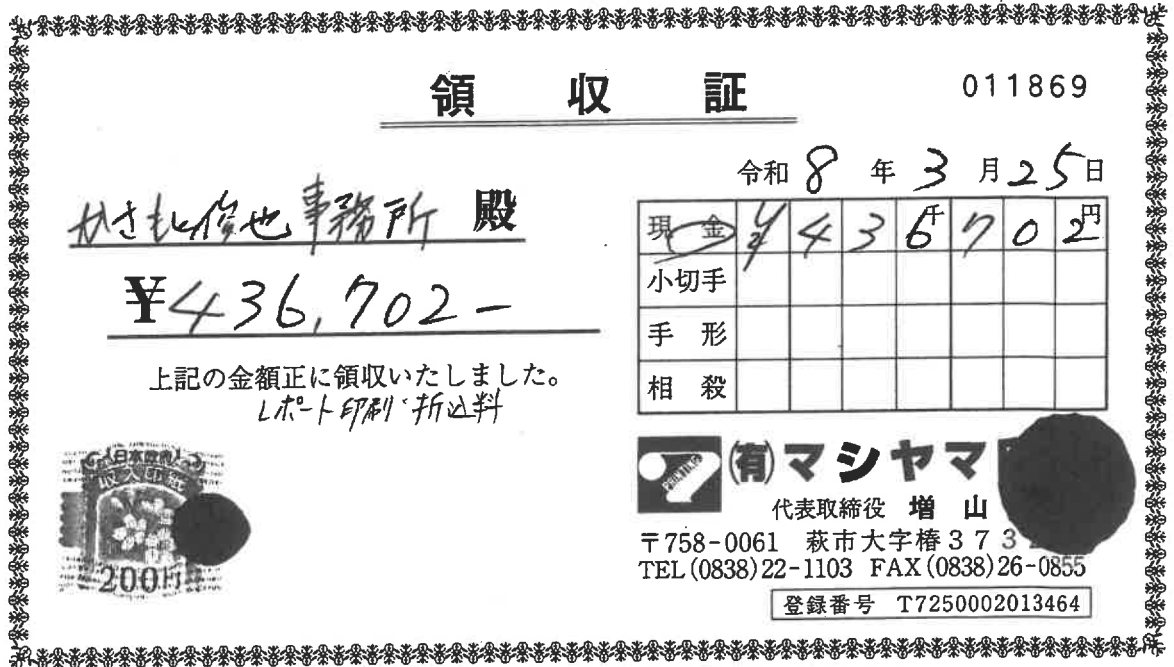 領収証
011869
令和8年3月25日
かさもと俊也事務所 殿
¥436,702-
上記の金額正に領収いたしました。
レポート印刷・折込料
現金 ¥ 4 3 6千 7 0 2円
小切手
手形
相殺
日本政府
収入印紙
200円
PRINTING
(有)マシヤマ
代表取締役 増山
〒758-0061 萩市大字椿373
TEL(0838)22-1103 FAX(0838)26-0855
登録番号 T7250002013464